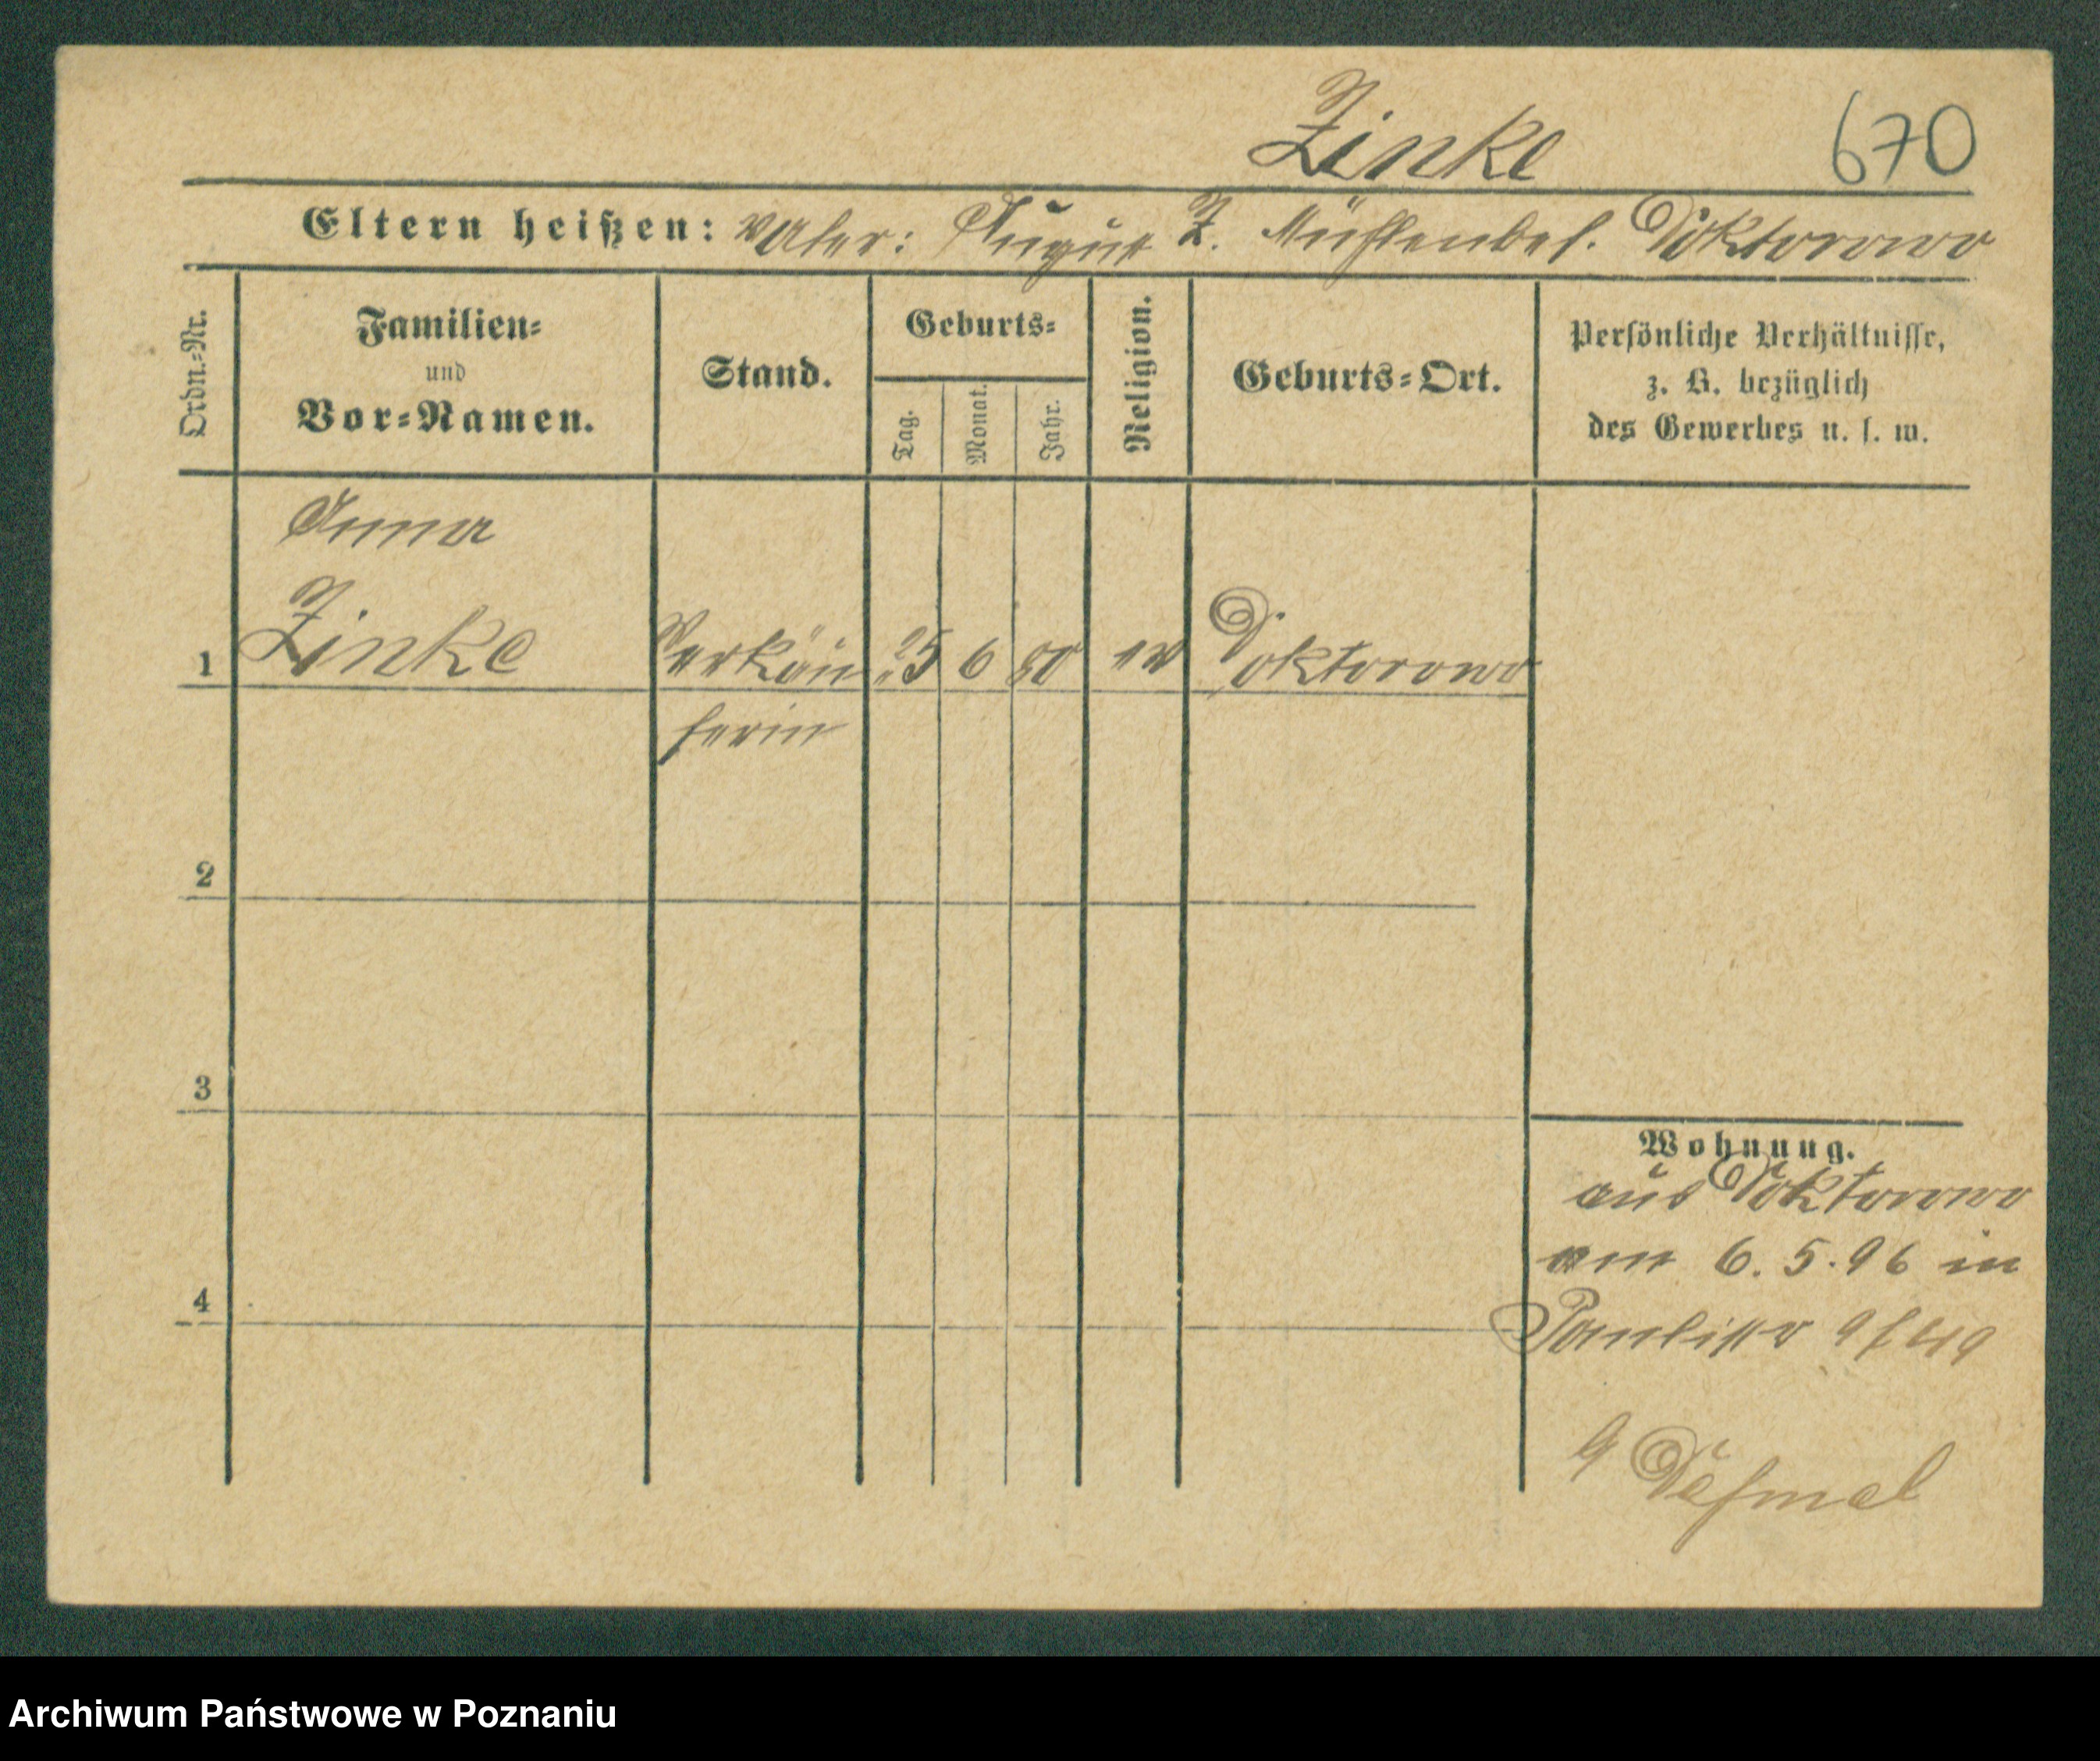 Zinke 670
Eltern heißen: Vater: August Z. Mühlenbes. Doktorowo
Ordn.-Nr.
Familien-
und
Vor-Namen.
Stand.
Geburts-
Tag.
Monat.
Jahr.
Religion.
Geburts-Ort.
Persönliche Verhältnisse,
z. B. bezüglich
des Gewerbes u. s. w.
Anna
1 Zinke Verkäu 25 6 ev Doktorowo
ferin
2
3
4
Wohnung.
aus Doktorowo
am 6. 5. 96 in
Archiwum Państwowe w Poznaniu